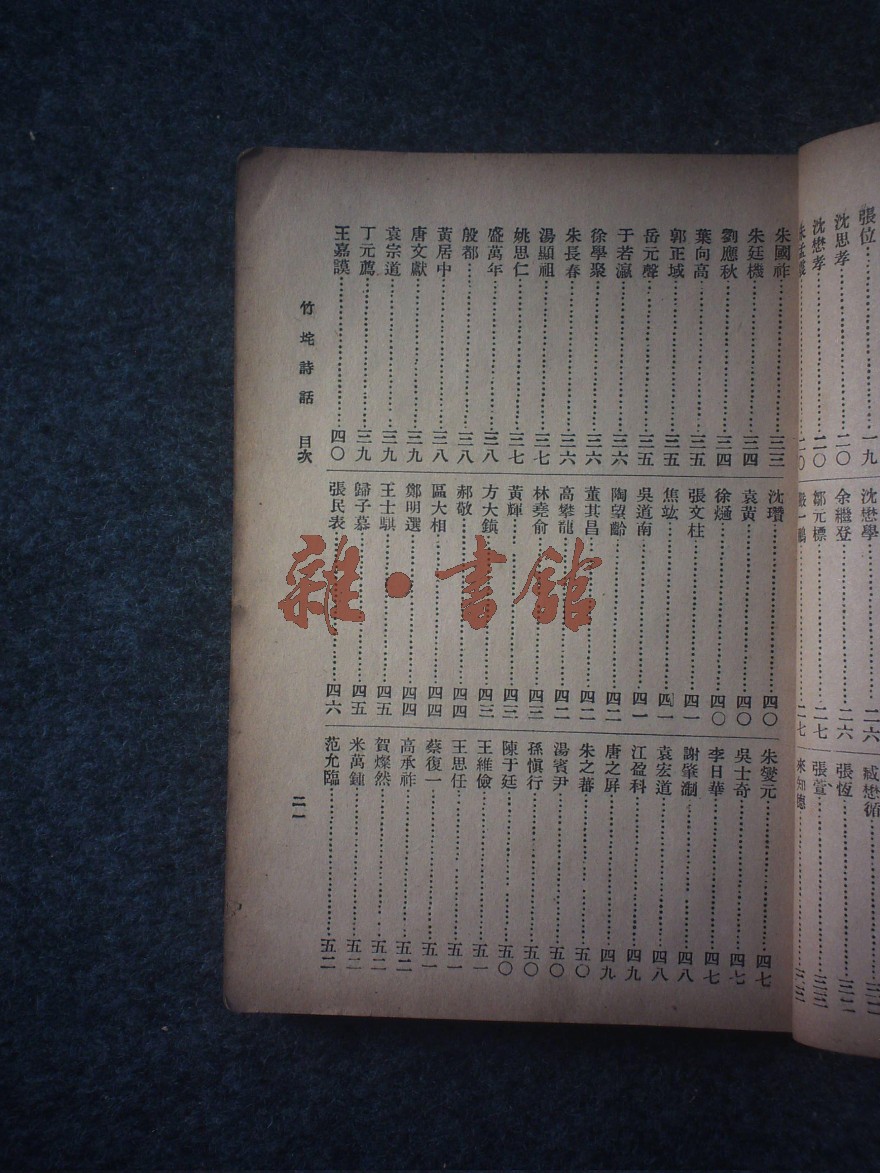 張位一九
沈思孝二〇
沈懋孝二〇
沈懋學二六
余繼登二六
鄒元標二七
臧懋循
張恆
張萱
朱國祚三三
朱廷機三四
劉應秋三四
葉向高三五
郭正域三五
岳元聲三五
于若瀛三六
徐學聚三六
朱長春三六
湯顯祖三七
姚思仁三七
盛萬年三八
殷都三八
黃居中三八
唐文獻三九
袁宗道三九
丁元薦三九
王嘉謨四〇
沈瓚四〇
袁黃四〇
徐熥四〇
張文柱四一
焦竑四一
吳道南四一
陶望齡四二
董其昌四二
高攀龍四二
林堯俞四三
黃輝四三
方大鎮四三
郝敬四四
區大相四四
鄭明選四四
王士騏四五
歸子慕四五
張民表四六
朱燮元四七
吳士奇四七
李日華四七
謝肇淛四八
袁宏道四八
江盈科四九
唐之屏四九
朱之蕃五〇
湯賓尹五〇
孫愼行五〇
陳于廷五〇
王維儉五一
王思任五一
蔡復一五一
高承祚五二
賀燦然五二
米萬鍾五二
范允臨五二
竹垞詩話 目次
二一
雜·書館